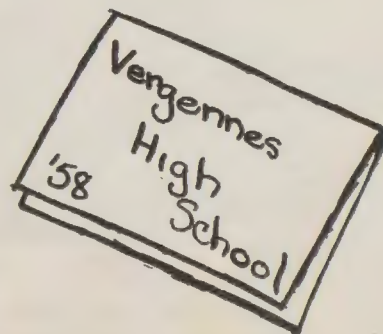 Vergennes
High
School
'58